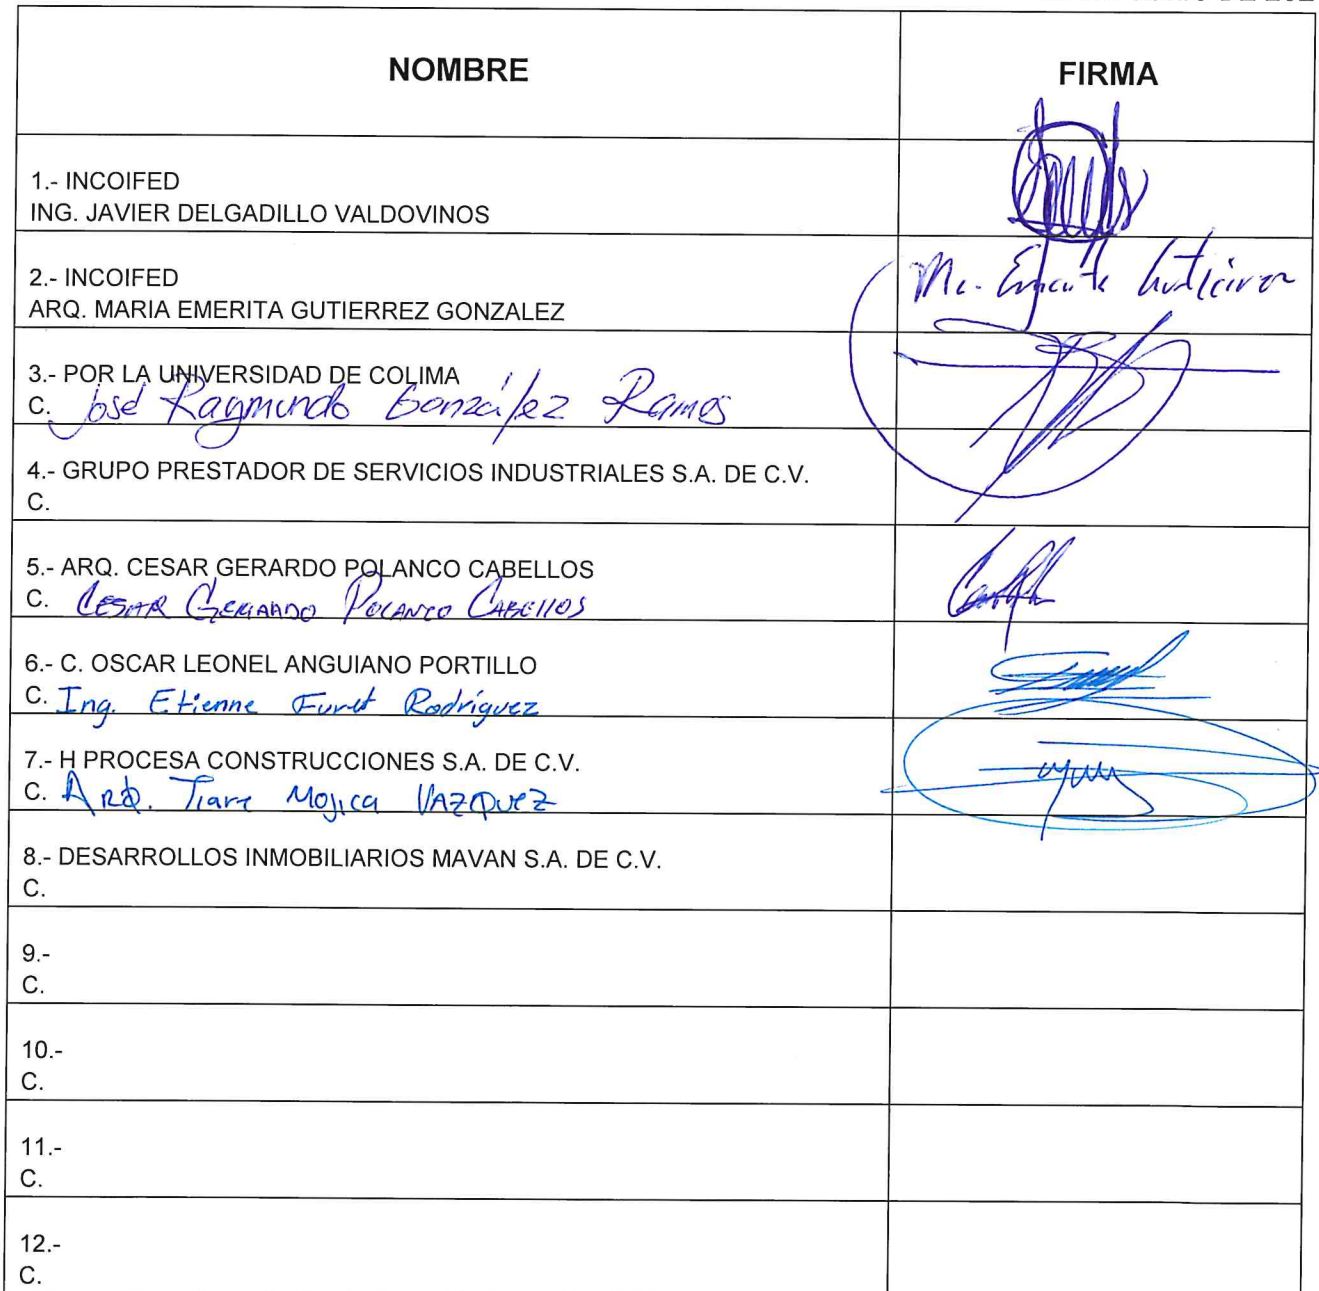 NOMBRE
FIRMA
1.- INCOIFED
ING. JAVIER DELGADILLO VALDOVINOS
2.- INCOIFED
ARQ. MARIA EMERITA GUTIERREZ GONZALEZ
Ma. Emerita Gutiérrez
3.- POR LA UNIVERSIDAD DE COLIMA
C. José Raymundo González Ramos
4.- GRUPO PRESTADOR DE SERVICIOS INDUSTRIALES S.A. DE C.V.
C.
5.- ARQ. CESAR GERARDO POLANCO CABELLOS
C. CESAR GERARDO POLANCO CABELLOS
6.- C. OSCAR LEONEL ANGUIANO PORTILLO
C. Ing. Etienne Furet Rodríguez
7.- H PROCESA CONSTRUCCIONES S.A. DE C.V.
C. ARQ. Tiare Mojica VAZQuez
8.- DESARROLLOS INMOBILIARIOS MAVAN S.A. DE C.V.
C.
9.-
C.
10.-
C.
11.-
C.
12.-
C.